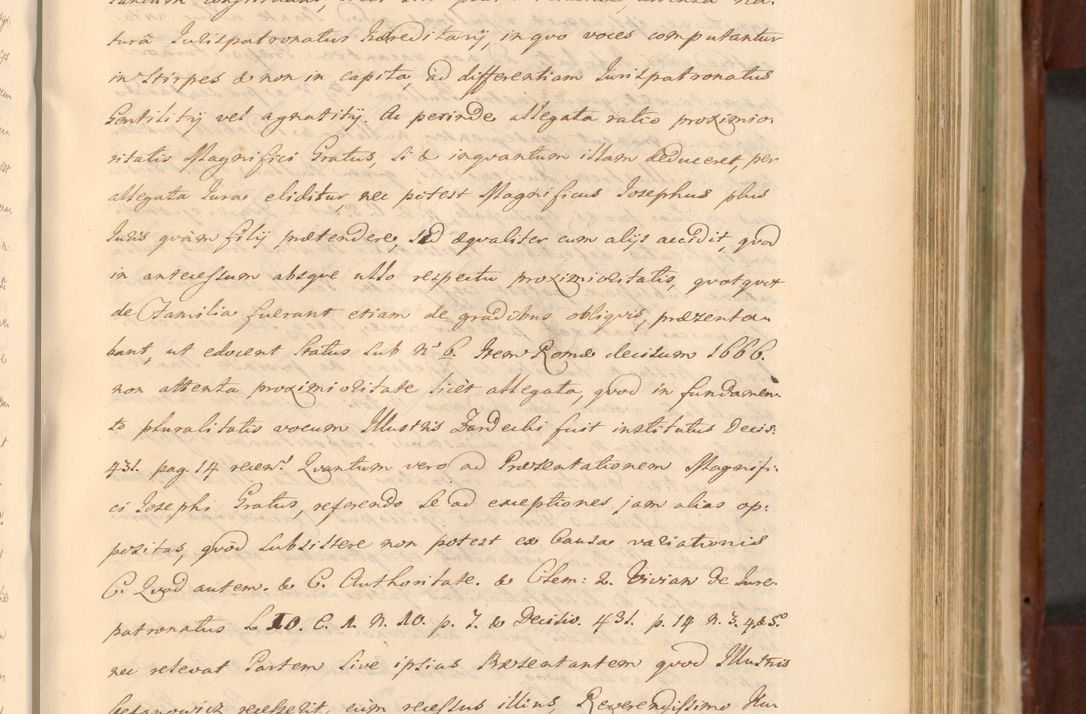 turâ Iurispatronatus Hæreditarij, in quo voces computantur
in Stirpes & non in capita, ad differentiam Iurispatronatus
Gentilitij vel agnatitij. Ac perinde allegata ratio proximio-
ritatis Magnifici Gratus, si & inquantum illam deduceret, per
allegata Iura eliditur, nec potest Magnificus Iosephus plus
Iuris quàm filij prætendere, sed æqualiter cum alijs accidit, quod
in antecessum absque ullo respectu proximioritatis, quotquot
de Familia fuerant etiam de gradibus obliquis, præzenta-
bant, ut edocent Status sub N. 6. Item Romæ decisum 1666.
non attenta proximioritate licèt allegata, quod in fundamen-
to pluralitatis vocum Illustris Zardecki fuit institutus Decis:
431. pag. 14 recen. Quantum vero ad Præsentationem Magnifi-
ci Iosephi Gratus, referendo se ad exceptiones jam alias op-
positas, quòd subsistere non potest ex Causa variationis
C. Quod autem. & C. Authoritate. & Clem: 2. Vivian de Iure-
patronatus L. 10. C. 1. N. 10. p. 7. & Decisio. 431. p. 14 N. 3. 4. & 5.
nec relevat Partem sive ipsius Præsentantem quod Illustris
recesserit, cùm recessus illius, Reverendissimo